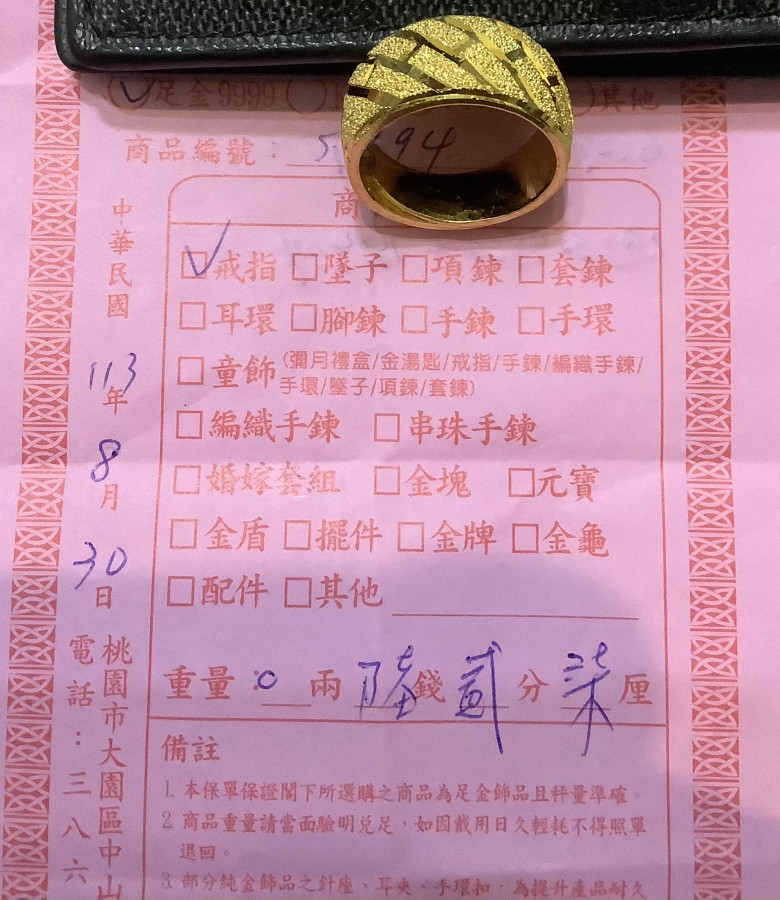 足金9999
其他
商品編號：
94
商
戒指 墜子 項鍊 套鍊
耳環 腳鍊 手鍊 手環
童飾(彌月禮盒/金湯匙/戒指/手鍊/編織手鍊/
手環/墜子/項鍊/套鍊)
編織手鍊 串珠手鍊
婚嫁套組 金塊 元寶
金盾 擺件 金牌 金龜
配件 其他
重量：0兩陸錢貳分柒厘
備註
1. 本保單保證閣下所選購之商品為足金飾品且秤量準確。
2. 商品重量請當面驗明兌足，如因戴用日久輕耗不得照單
退回。
3. 部分純金飾品之針座、耳夾、手環扣，為提升產品耐久
中華民國113年8月30日
桃園市大園區中山
電話：三八六